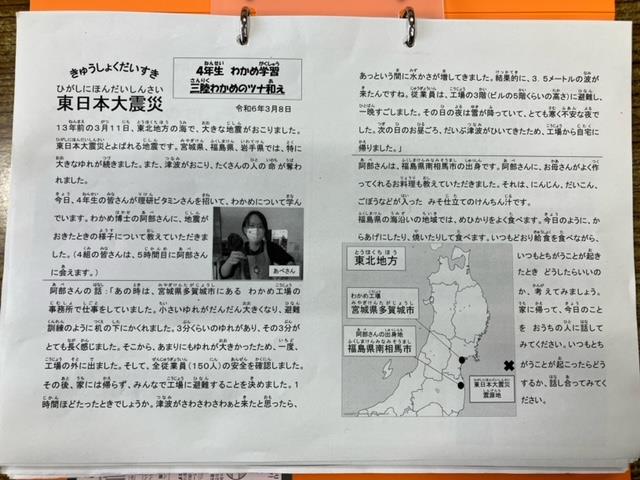 きゅうしょくだいすき
ひがしにほんだいしんさい
東日本大震災
4年生 わかめ学習
三陸わかめのツナ和え
令和6年3月8日
13年前の3月11日、東北地方の海で、大きな地震がおこりました。
東日本大震災とよばれる地震です。宮城県、福島県、岩手県では、特に
大きなゆれが続きました。また、津波がおこり、たくさんの人の命が奪わ
れました。
今日、4年生の皆さんが理研ビタミンさんを招いて、わかめについて学ん
でいます。わかめ博士の阿部さんに、地震が
おきたときの様子について教えていただきま
した。(4組の皆さんは、5時間目に阿部さん
に会えます。)
あべさん
阿部さんの話:「あの時は、宮城県多賀城市にある わかめ工場の
事務所で仕事をしていました。小さいゆれがだんだん大きくなり、避難
訓練のように机の下にかくれました。3分くらいのゆれがあり、その3分が
とても長く感じました。そこから、あまりにもゆれが大きかったため、一度、
工場の外に出ました。そして、全従業員(150人)の安全を確認しました。
その後、家には帰らず、みんなで工場に避難することを決めました。1
時間ほどたったときでしょうか。津波がさわさわさわぁと来たと思ったら、
あっという間に水かさが増してきました。結果的に、3.5メートルの波が
来たんですね。従業員は、工場の3階(ビルの5階くらいの高さ)に避難し、
一晩すごしました。その日の夜は雪が降っていて、とても寒い不安な夜で
した。次の日のお昼ごろ、だいぶ津波がひいてきたため、工場から自宅に
帰りました。」
阿部さんは、福島県南相馬市の出身です。阿部さんに、お母さんがよく作
ってくれるお料理も教えていただきました。それは、にんじん、だいこん、
ごぼうなどが入った みそ仕立てのけんちん汁です。
福島県の海沿いの地域では、めひかりをよく食べます。今日のように、か
らあげにしたり、焼いたりして食べます。いつもどおり給食を食べながら、
いつもとちがうことが起き
たとき どうしたらいいの
か、考えてみましょう。
家に帰って、今日のこと
をおうちの人に話して
みてください。いつもとち
がうことが起こったらどう
するか、話し合ってみてく
ださい。
東北地方
わかめ工場
宮城県多賀城市
阿部さんの出身地
福島県南相馬市
東日本大震災
震源地